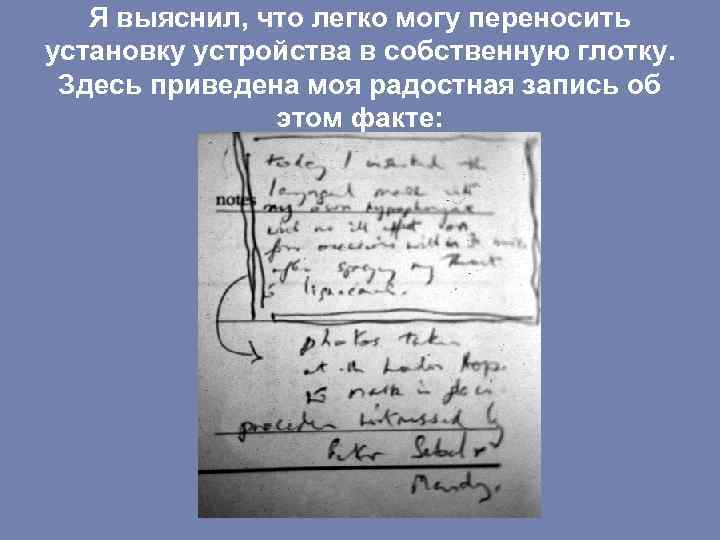 Я выяснил, что легко могу переносить
установку устройства в собственную глотку.
Здесь приведена моя радостная запись об
этом факте:
today I inserted the
laryngeal mask into
notes
my own hypopharynx
with no ill effect
four occasions within 30
after spraying my throat
lignocaine.
photos taken
at the London Hosp
mask in
procedure witnessed by
Peter Sebel
Mandy.